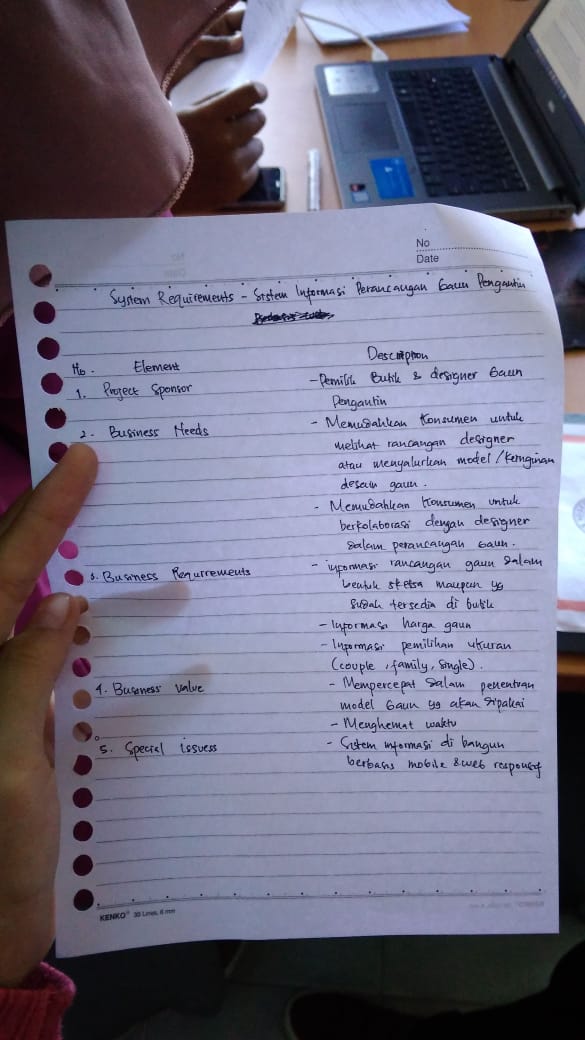 No
Date
System Requirements - Sistem Informasi Perancangan Gaun Pengantin
No. Element Description
1. Project Sponsor - Pemilik Butik & designer Gaun
Pengantin
2. Business Needs - Memudahkan Konsumen untuk
melihat rancangan designer
atau menyalurkan model/keinginan
desain gaun.
- Memudahkan Konsumen untuk
berkolaborasi dengan designer
dalam perancangan Gaun.
3. Business Requirements - informasi rancangan gaun dalam
bentuk sketsa maupun yg
sudah tersedia di butik
- Informasi harga gaun
- Informasi pemilihan ukuran
(couple, family, single).
4. Business Value - Mempercepat dalam penentuan
model Gaun yg akan dipakai
- Menghemat waktu
5. Special Issuess - Sistem informasi di bangun
berbasis mobile & web responsif
KENKO® 30 Lines, 8 mm